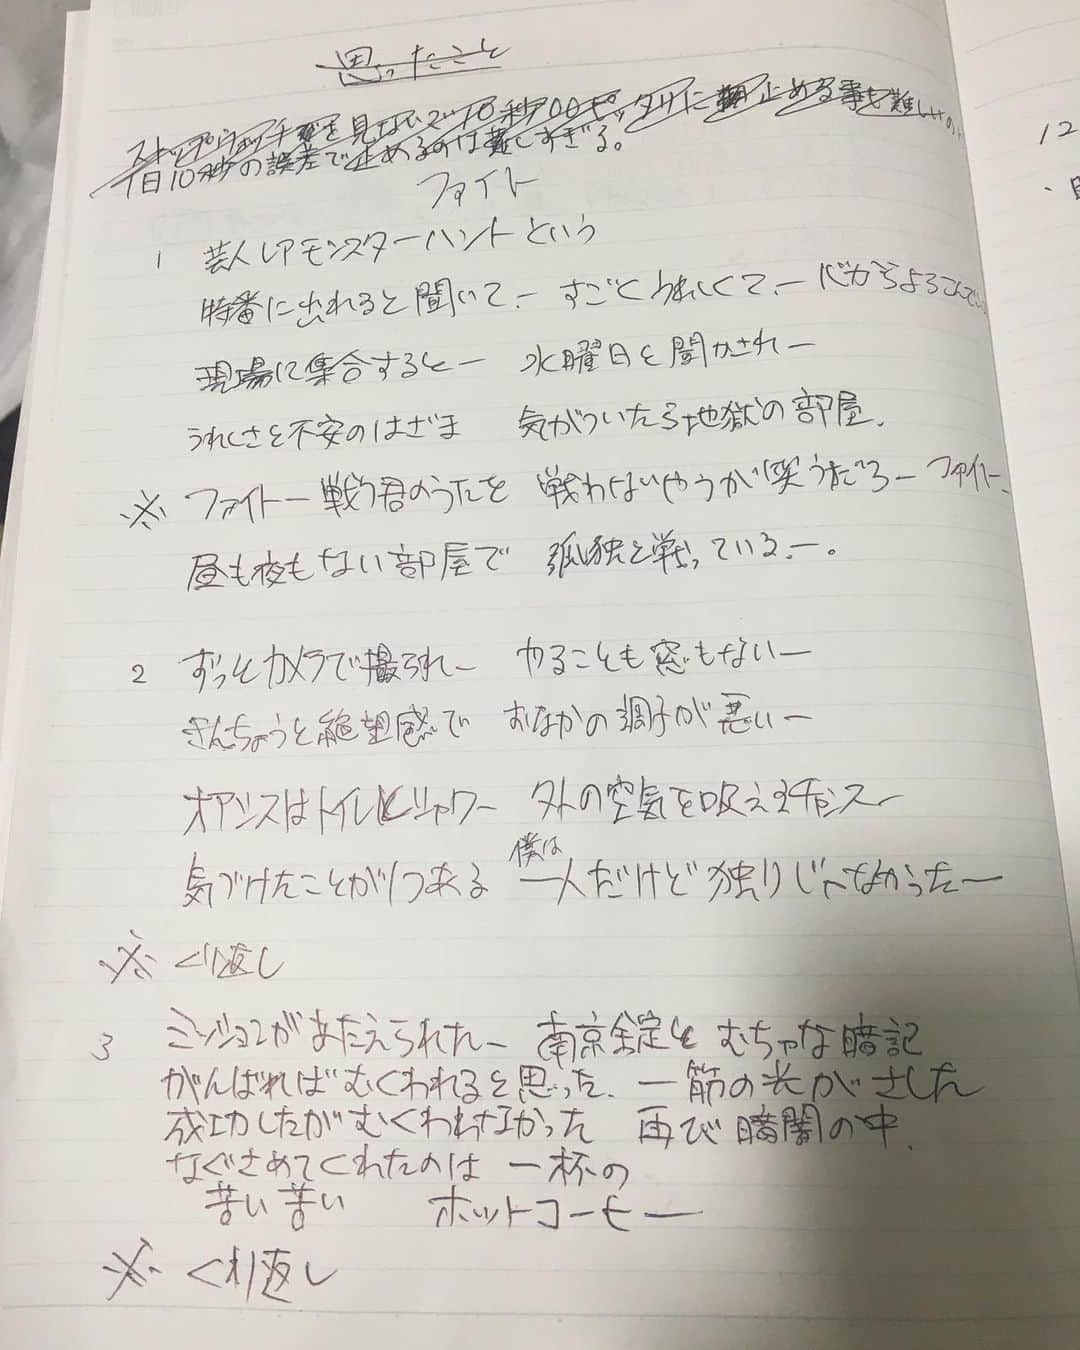 思ったこと
ストップウォッチを見ないで10秒00ピッタリに止める事も難しいの
1日10秒の誤差で止めるのは難しすぎる。
ファイト
1 芸人レアモンスターハントという
特番に出れると聞いてー すごくうれしくてー 心からよろこんで
現場に集合するとー 水曜日と聞かされー
うれしさと不安のはざま 気がついたら地獄の部屋、
※ ファイトー戦う君のうたを 戦わないやつが笑うだろー ファイトー
昼も夜もない部屋で 孤独と戦っているー。
2 ずっとカメラで撮られー やることも窓もないー
きんちょうと絶望感で おなかの調子が悪いー
オアシスはトイレとシャワー 外の空気を吸えるチャンスー
僕は
気づけたことが1つある 一人だけど独りじゃなかったー
※ くり返し
12
3 ミッションがあたえられたー 南京錠と むちゃな暗記
がんばればむくわれると思った、一筋の光がさした
成功したがむくわれなかった 再び暗闇の中、
なぐさめてくれたのは 一杯の
苦い苦い ホットコーヒー
※ くり返し